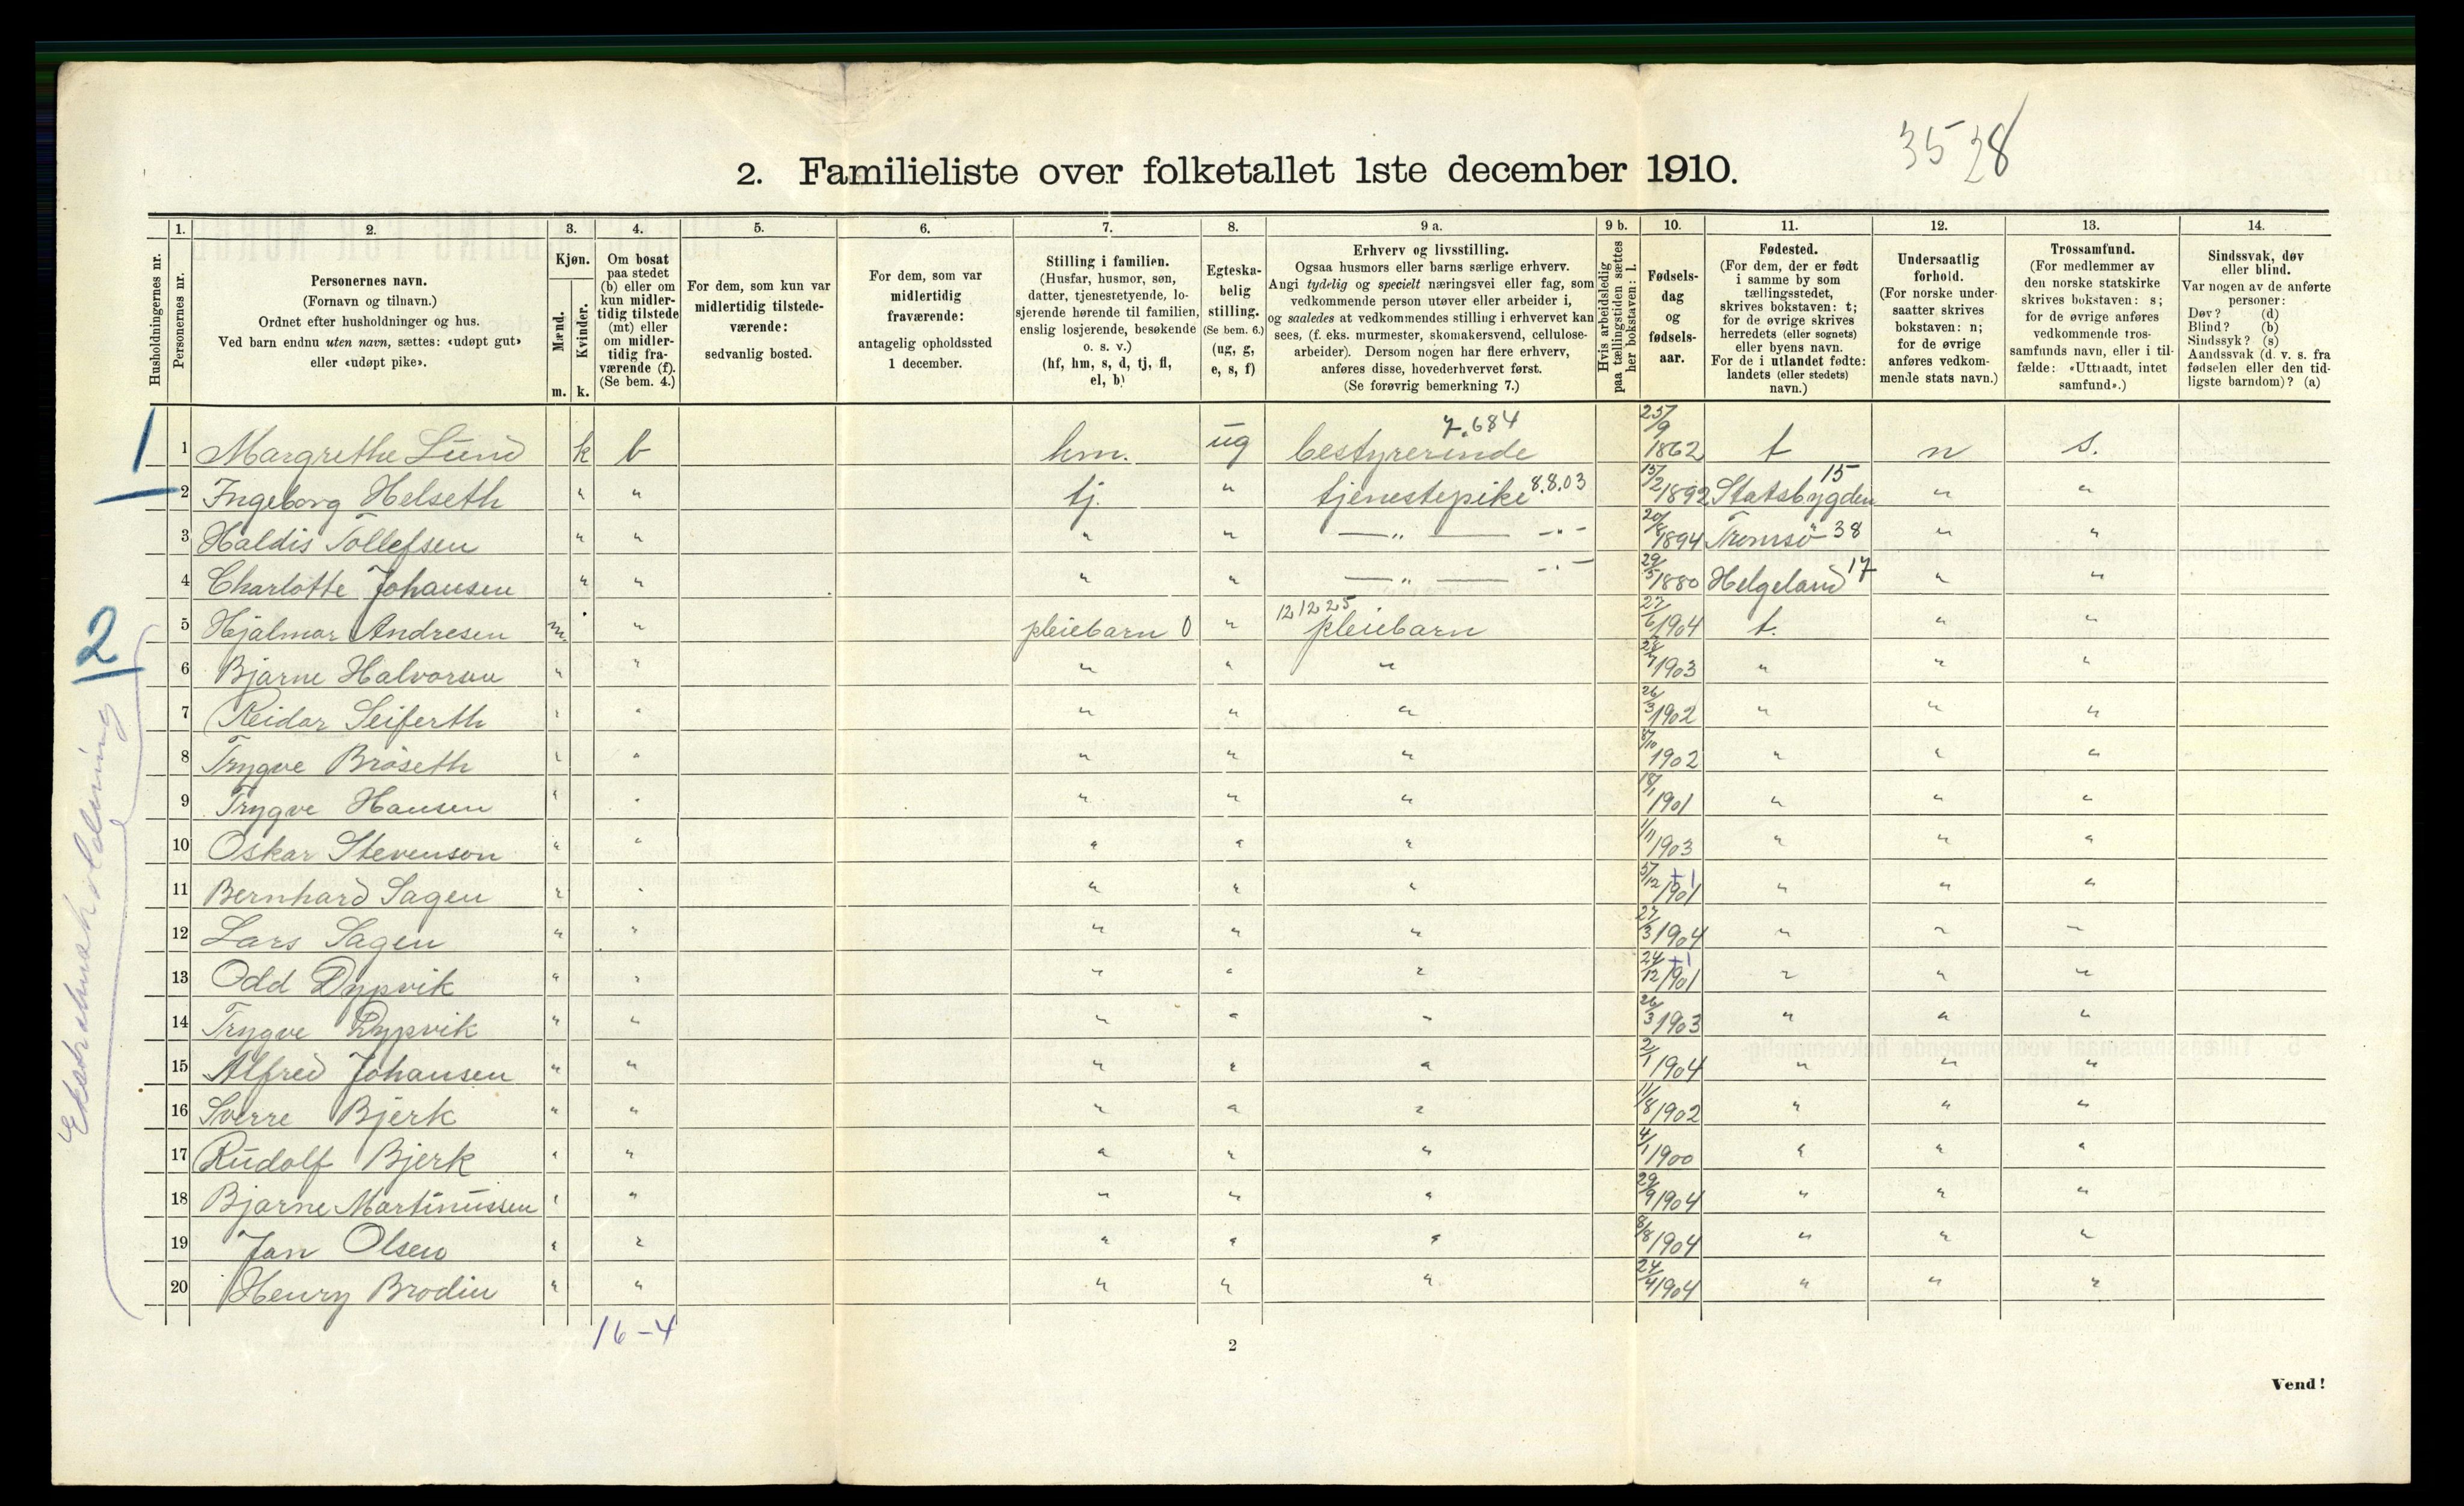 35 28
2. Familieliste over folketallet 1ste december 1910.
Husholdningernes nr.
1. Personernes nr.
2. Personernes navn.
(Fornavn og tilnavn.)
Ordnet efter husholdninger og hus.
Ved barn endnu uten navn, sættes: «udøpt gut»
eller «udøpt pike».
3. Kjøn.
Mænd. Kvinder.
m. k.
4. Om bosat
paa stedet
(b) eller om
kun midler-
tidig tilstede
(mt) eller
om midler-
tidig fra-
værende (f).
(Se bem. 4.)
5. For dem, som kun var
midlertidig tilstede-
værende:
sedvanlig bosted.
6. For dem, som var
midlertidig
fraværende:
antagelig opholdssted
1 december.
7. Stilling i familien.
(Husfar, husmor, søn,
datter, tjenestetyende, lo-
sjerende hørende til familien,
enslig losjerende, besøkende
o. s. v.)
(hf, hm, s, d, tj, fl,
el, b)
8. Egteska-
belig
stilling.
(Se bem. 6.)
(ug, g,
e, s, f)
9 a. Erhverv og livsstilling.
Ogsaa husmors eller barns særlige erhverv.
Angi tydelig og specielt næringsvei eller fag, som
vedkommende person utøver eller arbeider i,
og saaledes at vedkommendes stilling i erhvervet kan
sees, (f. eks. murmester, skomakersvend, cellulose-
arbeider). Dersom nogen har flere erhverv,
anføres disse, hovederhvervet først.
(Se forøvrig bemerkning 7.)
9 b. Hvis arbeidsledig
paa tællingstiden sættes
her bokstaven: l.
10. Fødsels-
dag
og
fødsels-
aar.
11. Fødested.
(For dem, der er født
i samme by som
tællingsstedet,
skrives bokstaven: t;
for de øvrige skrives
herredets (eller sognets)
eller byens navn.
For de i utlandet fødte:
landets (eller stedets)
navn.)
12. Undersaatlig
forhold.
(For norske under-
saatter skrives
bokstaven: n;
for de øvrige
anføres vedkom-
mende stats navn.)
13. Trossamfund.
(For medlemmer av
den norske statskirke
skrives bokstaven: s;
for de øvrige anføres
vedkommende tros-
samfunds navn, eller i til-
fælde: «Uttraadt, intet
samfund».)
14. Sindssvak, døv
eller blind.
Var nogen av de anførte
personer:
Døv? (d)
Blind? (b)
Sindssyk? (s)
Aandssvak (d. v. s. fra
fødselen eller den tid-
ligste barndom)? (a)
1 1 Margrethe Lund k b hm. ug bestyrerinde 7.684 25/9 1862 t n s.
2 Ingeborg Helseth " " tj. " tjenestepike 8.8.03 15/2 1892 Statsbygden 15 " "
3 Haldis Tollefsen " " " " — " — - " - 20/8 1894 Tromsø 38 " "
4 Charlotte Johansen " " " " — " — - " - 29/5 1880 Helgeland 17 " "
2 5 Hjalmar Andresen m " pleiebarn 0 " 12 12 25 pleiebarn 27/6 1904 t. " "
6 Bjarne Halvorsen " " " " " 1903 " " "
7 Reidar Seiferth " " " " " 26/3 1902 " " "
8 Trygve Brøseth " " " " " 8/10 1902 " " "
9 Trygve Hansen " " " " " 18/1 1901 " " "
10 Oskar Stevenson " " " " " 1/11 1903 " " "
11 Bernhard Sagen " " " " " 5/12 1901 +1 " " "
12 Lars Sagen " " " " " 27/3 1904 " " "
13 Odd Dypvik " " " " " 24/12 1901 +1 " " "
14 Trygve Dypvik " " " " " 26/3 1903 " " "
15 Alfred Johansen " " " " " 2/1 1904 " " "
16 Sverre Bjerk " " " " " 11/8 1902 " " "
17 Rudolf Bjerk " " " " " 4/1 1900 " " "
18 Bjarne Martinussen " " " " " 29/9 1904 " " "
19 Jan Olsen " " " " " 8/8 1904 " " "
20 Henry Brodin " " " " " 24/4 1904 " " "
Ekstrahusholdning
16-4
2
Vend!